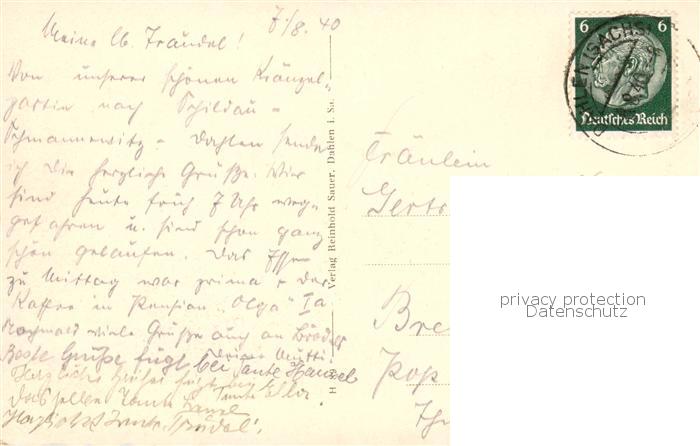 7/8. 40
Meine lb. Traudel!
Von unserer schönen Kränzel-
partie nach Schildau -
Schmannewitz - Dahlen sende
ich Dir herzliche Grüße. Wir
sind heute früh 7 Uhr weg-
gefahren u. sind schon ganz
schön gelaufen. Das Essen
zu Mittag war prima u. der
Kaffee in Pension „Olga" Ia
Nochmals viele Grüße auch an
Deine Mutti
Beste Grüße fügt bei Tante Hansel
Herzliche Grüße fügt bei Tante Ella.
Dasselbe Tante
Herzlichst Tante
Verlag Reinhold Sauer, Dahlen i. Sa.
6 6
Deutsches Reich
DAHLEN (SACHS)
8.40
Fräulein
Gertr
Bre
Pop
Th
privacy protection
Datenschutz